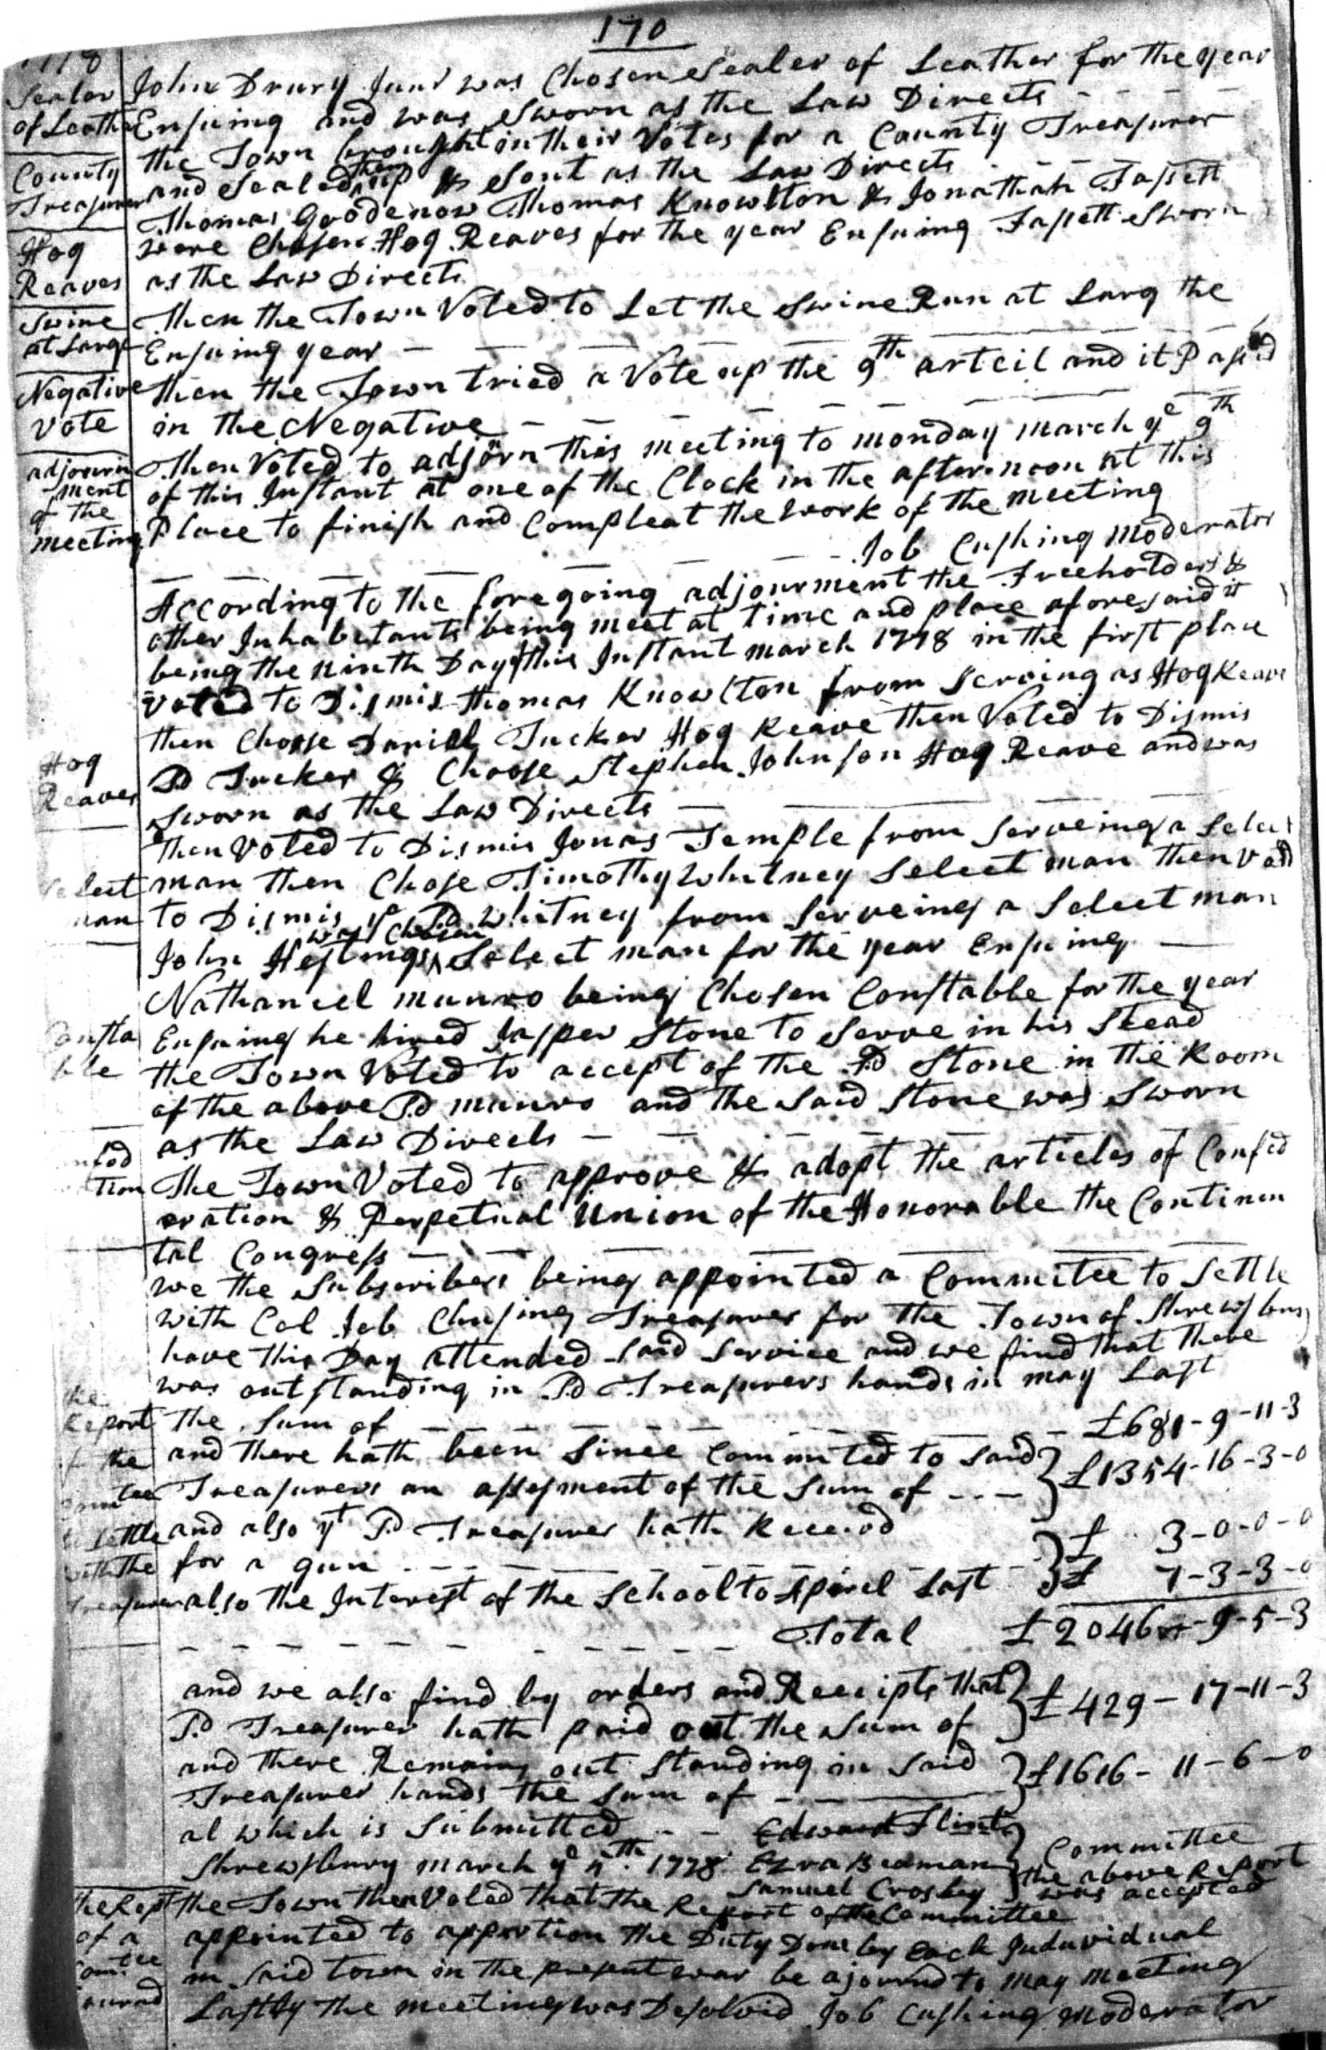 170
1778
Sealer
of Leather
John Drury Junr was Chosen Sealer of Leather for the year
Ensuing and was Sworn as the Law Directs
County
Treasurer
the Town brought in their Votes for a County Treasurer
and Sealed them up & Sent as the Law Directs
Hog
Reaves
Thomas Goodenow Thomas Knowlton & Jonathah Fassett
were Chosen Hog Reaves for the year Ensuing Fassett Sworn
as the Law Directs
Swine
at Large
Then the Town Voted to Let the Swine Run at Larg the
Ensuing year
Negative
Vote
then the Town tried a Vote up the 9th arteil and it Passed
in the Negative
adjourn
ment
of the
meeting
Then Voted to adjorn this meeting to monday march ye 9th
of this Instant at one of the Clock in the afternoon at this
Place to finish and Compleat the work of the meeting
Job Cushing moderator
According to the foregoing adjourment the Freeholders &
other Inhabetants being meet at time and place aforesaid it
being the ninth Day of this Instant march 1778 in the first place
voted to Dismis Thomas Knowlton from Serving as Hog Reave
Hog
Reaves
then Chose Daniel Tucker Hog Reave then Voted to Dismis
Sd Tucker & Choose Stephen Johnson Hog Reave and was
Sworn as the Law Directs
Select
man
Then Voted to Dismis Jonas Temple from Serveing a Select
man then Chose Timothy Whitney Select man then Voted
to Dismis ye Sd Whitney from Serveing a Select man
John Hestings was Chosen Select man for the year Ensuing
Consta
ble
Nathaniel munro being Chosen Constable for the year
Ensuing he hired Jasper Stone to Serve in his Stead
the Town Voted to accept of the Sd Stone in the Room
of the above Sd munro and the Said Stone was Sworn
as the Law Directs
tion
The Town Voted to approve & adopt the articles of Confed
eration & Perpetual Union of the Honorable the Continen
tal Congress
we the Subscribers being appointed a Committee to Settle
with Col Job Chusing Treasurer for the Town of Shrewsbury
have this Day attended Said Service and we find that there
was outstanding in Sd Treasurers hands in may Last
the
Report
of the
Comtee
to Settle
with the
Treasurer
the Sum of £681-9-11-3
and there hath been Since Committed to Said
Treasurers an assesment of the Sum of £1354-16-3-0
and also yt Sd Treasurer hath Received
for a gun £ 3-0-0-0
also the Interest of the School to Apirel Last £ 7-3-3-0
Total £2046-9-5-3
and we also find by orders and Receipts that
Sd Treasurer hath paid out the Sum of £429-17-11-3
and there Remains out Standing in Said
Treasurer hands the Sum of £1616-11-6-0
al which is Submitted Edward Flint
Shrewsbury march ye 4th 1778 Ezra Beaman Committee
Samuel Crosby the above Report
was accepted
the Rept
of a
Comtee
the Town then Voted that the Report of the Committee
appointed to apportion the Duty Done by Each Induvidual
in Said town in the present war be ajournd to may meeting
Lastly the meeting was Desolvid Job Cushing Moderator